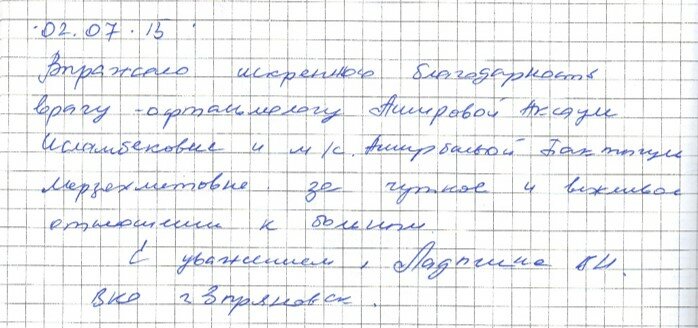 02.07.15
Выражаю искреннюю благодарность
врачу-офтальмологу Ашировой Аксауле
Исламбековне и м/с. Аширбаевой Бактыгул
за чуткое и вежливое
отношение к больным.
С уважением, В.Н.
ВКО г Зыряновск.